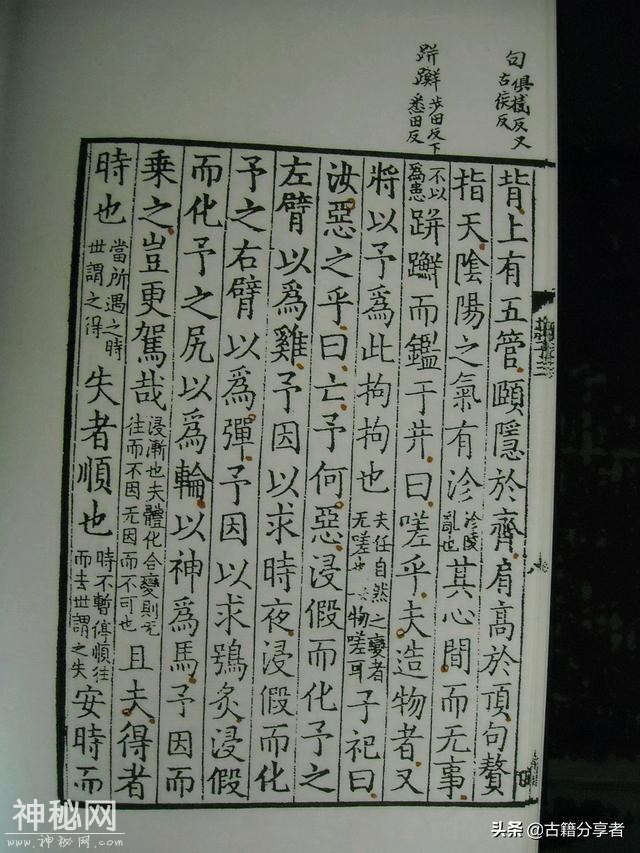 句俱樹反又
古侯反
跰𨇤步田反下
悉田反
背上有五管頤隱於齊肩髙於頂句贅
指天隂陽之氣有沴沴陵亂也其心閒而无事
不以爲患跰𨇤而鑑于井曰嗟乎夫造物者又
將以予爲此拘拘也夫任自然之變者无嗟也物嗟耳子祀曰
汝惡之乎曰亡予何惡浸假而化予之
左臂以爲雞予因以求時夜浸假而化
予之右臂以爲彈予因以求鴞炙浸假
而化予之尻以爲輪以神爲馬予因而
乗之豈更駕哉浸漸也夫體化合變則无往而不因无因而不可也且夫得者
時也當所遇之時世謂之得失者順也時不暫停順往而去世謂之失安時而
神秘网
www.神秘网.com
头条 @古籍分享者